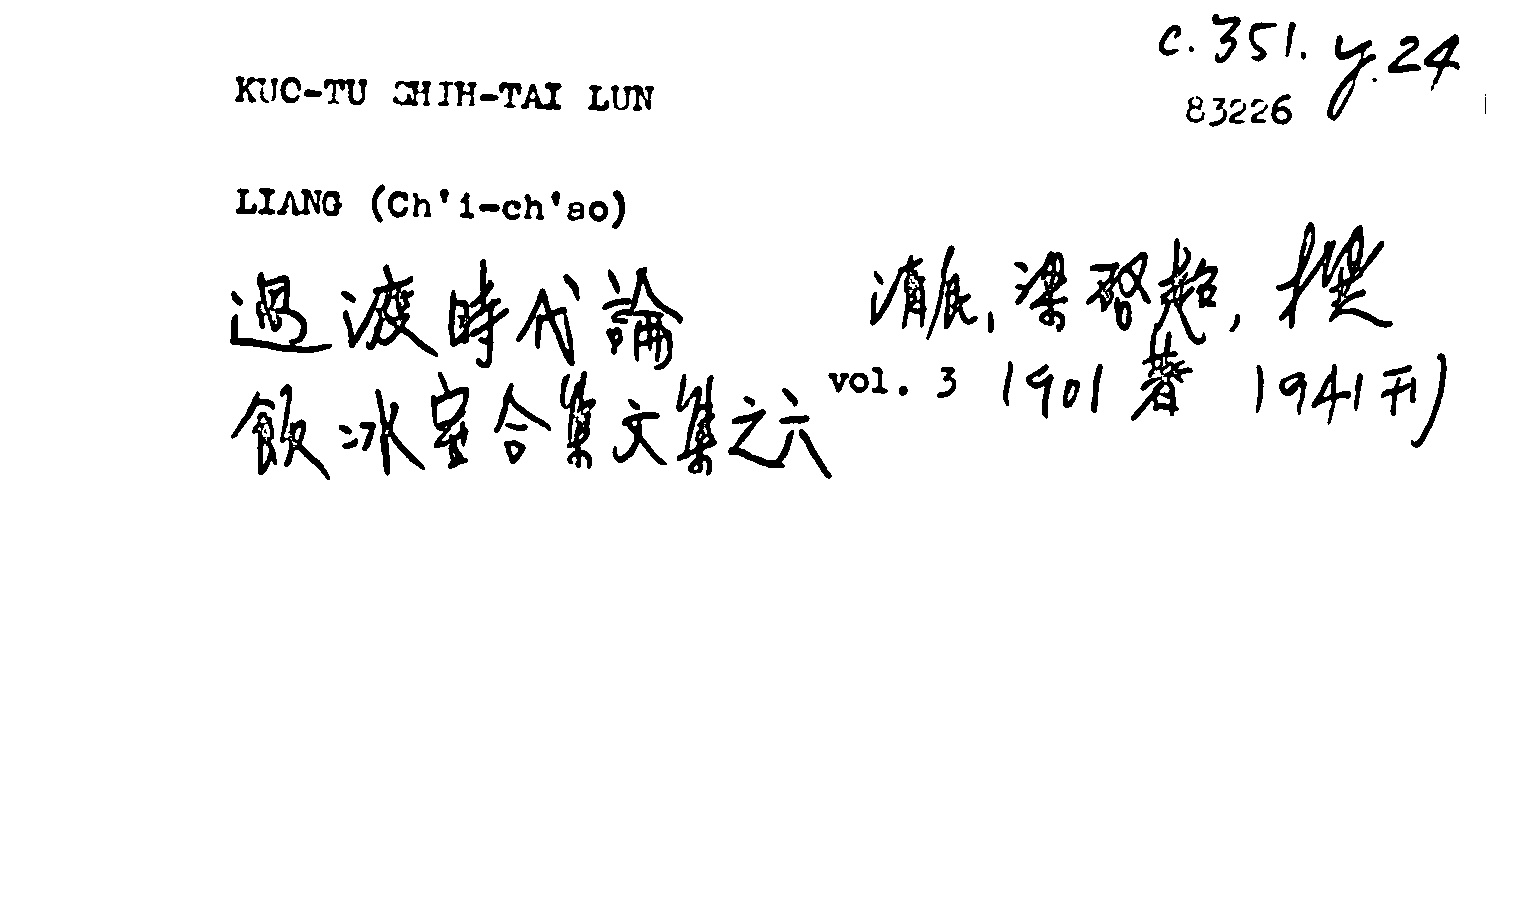 c. 351. y. 24
KUO-TU SHIH-TAI LUN
83226
LIANG (Ch'i-ch'ao)
過渡時代論 清民, 梁啓超, 撰
飲冰室合集文集之六 vol. 3 1901 著 1941 刊